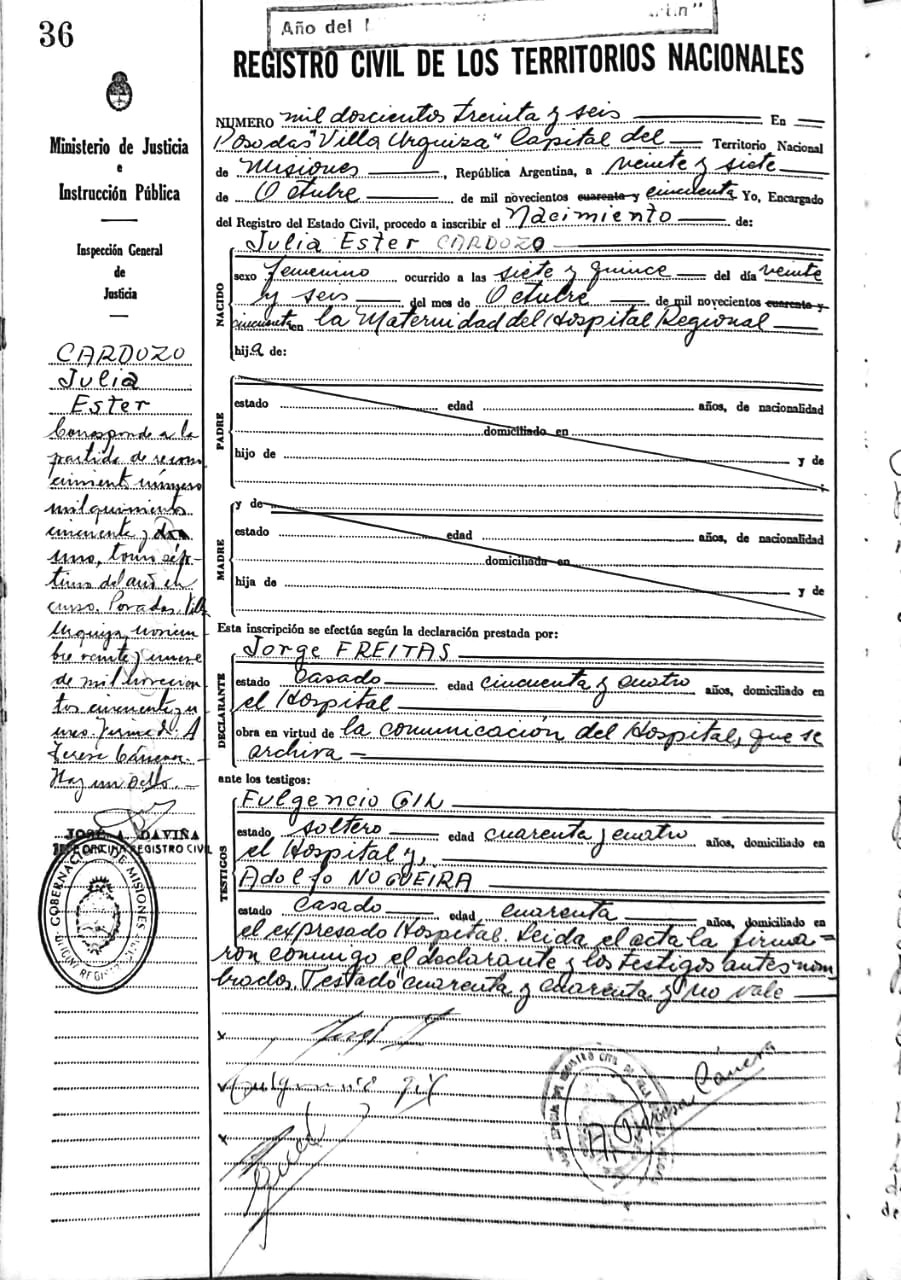 36
Año del
REGISTRO CIVIL DE LOS TERRITORIOS NACIONALES
Ministerio de Justicia
e
Instrucción Pública
Inspección General
de
Justicia
CARDOZO
Julia
Ester
Corresponde a la
partida de recono
cimiento número
mil quinientos
cincuenta y
uno, tomo sép-
timo del año en
curso. Posadas, Villa
Urquiza, noviem
bre veinte y nueve
de mil novecien
tos cincuenta y
unos. Firmado A
Teresa Cánena.-
Hay un sello.-
JOSÉ A. DAVIÑA
JEFE OFICINA REGISTRO CIVIL
GOBERNACION DE MISIONES
OFICINA REGISTRO CIVIL
NUMERO mil doscientos treinta y seis En
Posadas "Villa Urquiza" Capital del Territorio Nacional
de Misiones, República Argentina, a veinte y siete
de Octubre de mil novecientos cuarenta y cincuenta Yo, Encargado
del Registro del Estado Civil, procedo a inscribir el Nacimiento de:
NACIDO
Julia Ester CARDOZO
sexo femenino ocurrido a las siete y quince del día veinte
y seis del mes de Octubre de mil novecientos cuarenta y
cincuenta en la Maternidad del Hospital Regional
hija de:
PADRE
estado edad años, de nacionalidad
domiciliado en
hijo de y de
MADRE
y de
estado edad años, de nacionalidad
domiciliado en
hija de y de
Esta inscripción se efectúa según la declaración prestada por:
DECLARANTE
Jorge FREITAS
estado Casado edad cincuenta y cuatro años, domiciliado en
el Hospital
obra en virtud de la comunicación del Hospital, que se
archiva -
ante los testigos:
TESTIGOS
Fulgencio GIL
estado soltero edad cuarenta y cuatro años, domiciliado en
el Hospital y,
Adolfo NOGUEIRA
estado Casado edad cuarenta años, domiciliado en
el expresado Hospital. Leida el acta la firma=
ron conmigo el declarante y los testigos antes nom
brados. Testado "cuarenta y cuarenta y" no vale
x
x
x